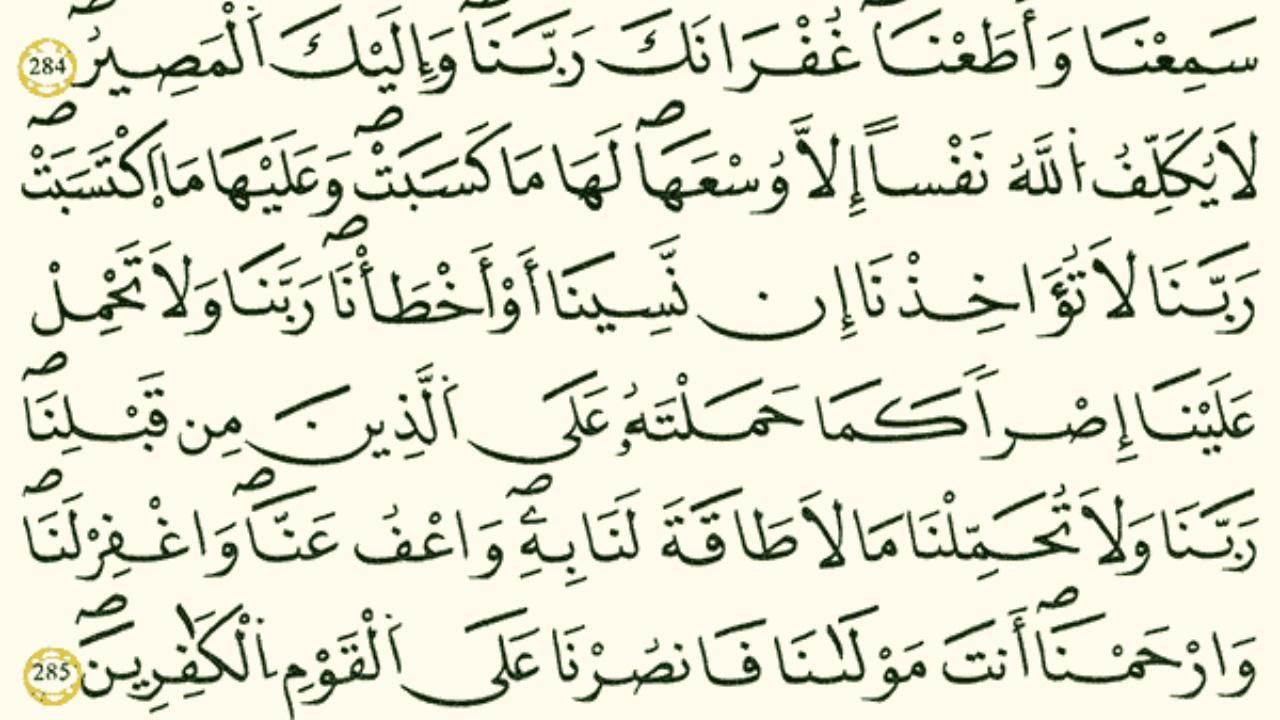 سَمِعْنَا وَأَطَعْنَاۖ غُفْرَانَكَ رَبَّنَاۖ وَإِلَيْكَ اَ۬لْمَصِيرُۖ 284
لَا يُكَلِّفُ اُ۬للَّهُ نَفْساً إِلَّا وُسْعَهَاۖ لَهَا مَا كَسَبَتْۖ وَعَلَيْهَا مَا اَ۪كْتَسَبَتْۖ
رَبَّنَا لَا تُؤَاخِذْنَا إِن نَّسِينَا أَوْ أَخْطَأْنَاۖ رَبَّنَا وَلَا تَحْمِلْ
عَلَيْنَا إِصْراً كَمَا حَمَلْتَهُۥ عَلَى اَ۬لَّذِينَ مِن قَبْلِنَاۖ
رَبَّنَا وَلَا تُحَمِّلْنَا مَا لَا طَاقَةَ لَنَا بِهِۦۖ وَاعْفُ عَنَّاۖ وَاغْفِرْ لَنَاۖ
وَارْحَمْنَاۖ أَنتَ مَوْلَىٰنَا فَانصُرْنَا عَلَى اَ۬لْقَوْمِ اِ۬لْكَٰفِرِينَۖ 285